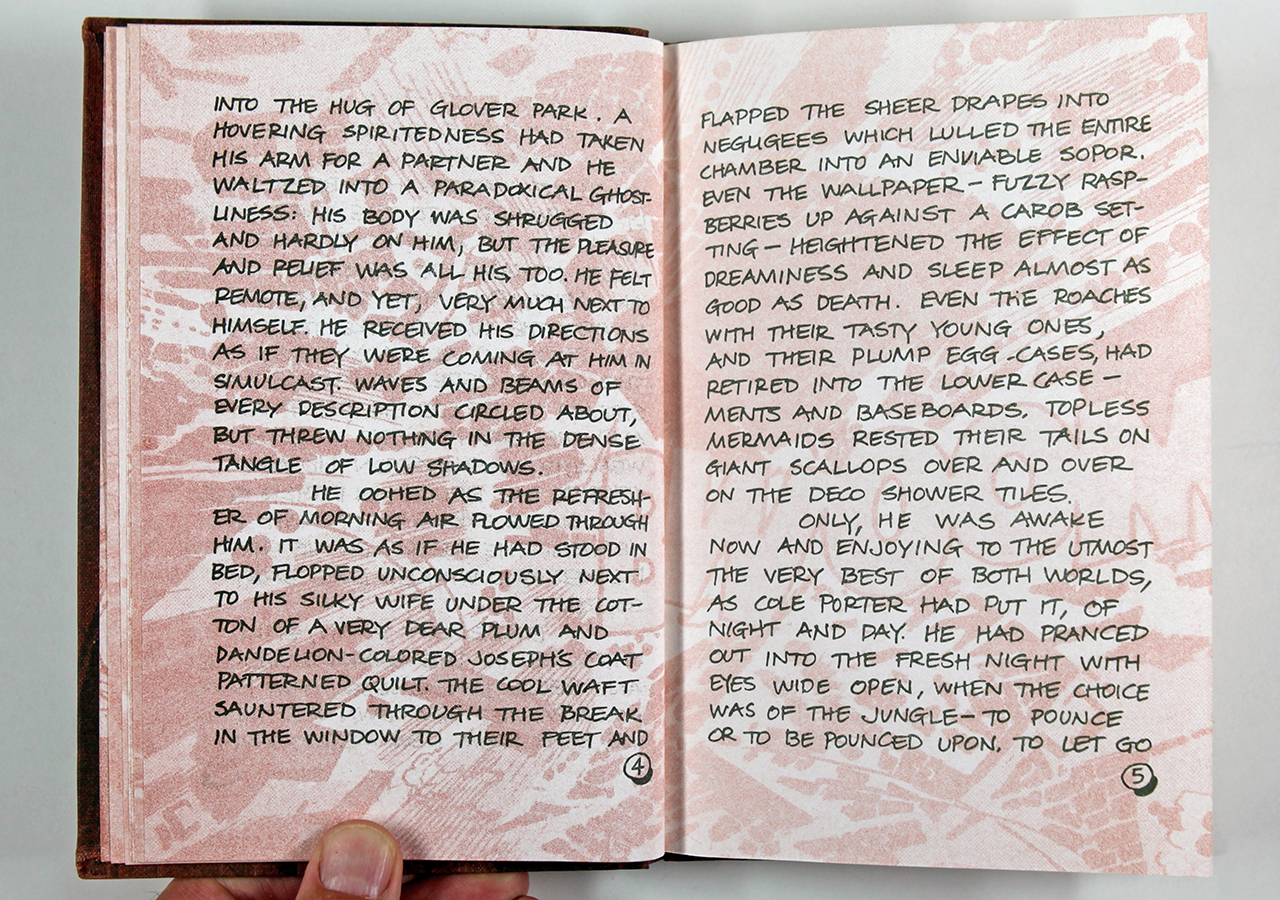 INTO THE HUG OF GLOVER PARK. A
HOVERING SPIRITEDNESS HAD TAKEN
HIS ARM FOR A PARTNER AND HE
WALTZED INTO A PARADOXICAL GHOST-
LINESS: HIS BODY WAS SHRUGGED
AND HARDLY ON HIM, BUT THE PLEASURE
AND RELIEF WAS ALL HIS, TOO. HE FELT
REMOTE, AND YET, VERY MUCH NEXT TO
HIMSELF. HE RECEIVED HIS DIRECTIONS
AS IF THEY WERE COMING AT HIM IN
SIMULCAST. WAVES AND BEAMS OF
EVERY DESCRIPTION CIRCLED ABOUT,
BUT THREW NOTHING IN THE DENSE
TANGLE OF LOW SHADOWS.
HE OOHED AS THE REFRESH-
ER OF MORNING AIR FLOWED THROUGH
HIM. IT WAS AS IF HE HAD STOOD IN
BED, FLOPPED UNCONSCIOUSLY NEXT
TO HIS SILKY WIFE UNDER THE COT-
TON OF A VERY DEAR PLUM AND
DANDELION-COLORED JOSEPH'S COAT
PATTERNED QUILT. THE COOL WAFT
SAUNTERED THROUGH THE BREAK
IN THE WINDOW TO THEIR FEET AND
4
FLAPPED THE SHEER DRAPES INTO
NEGLIGEES WHICH LULLED THE ENTIRE
CHAMBER INTO AN ENVIABLE SOPOR.
EVEN THE WALLPAPER - FUZZY RASP-
BERRIES UP AGAINST A CAROB SET-
TING - HEIGHTENED THE EFFECT OF
DREAMINESS AND SLEEP ALMOST AS
GOOD AS DEATH. EVEN THE ROACHES
WITH THEIR TASTY YOUNG ONES,
AND THEIR PLUMP EGG-CASES, HAD
RETIRED INTO THE LOWER CASE -
MENTS AND BASEBOARDS. TOPLESS
MERMAIDS RESTED THEIR TAILS ON
GIANT SCALLOPS OVER AND OVER
ON THE DECO SHOWER TILES.
ONLY, HE WAS AWAKE
NOW AND ENJOYING TO THE UTMOST
THE VERY BEST OF BOTH WORLDS,
AS COLE PORTER HAD PUT IT, OF
NIGHT AND DAY. HE HAD PRANCED
OUT INTO THE FRESH NIGHT WITH
EYES WIDE OPEN, WHEN THE CHOICE
WAS OF THE JUNGLE - TO POUNCE
OR TO BE POUNCED UPON. TO LET GO
5